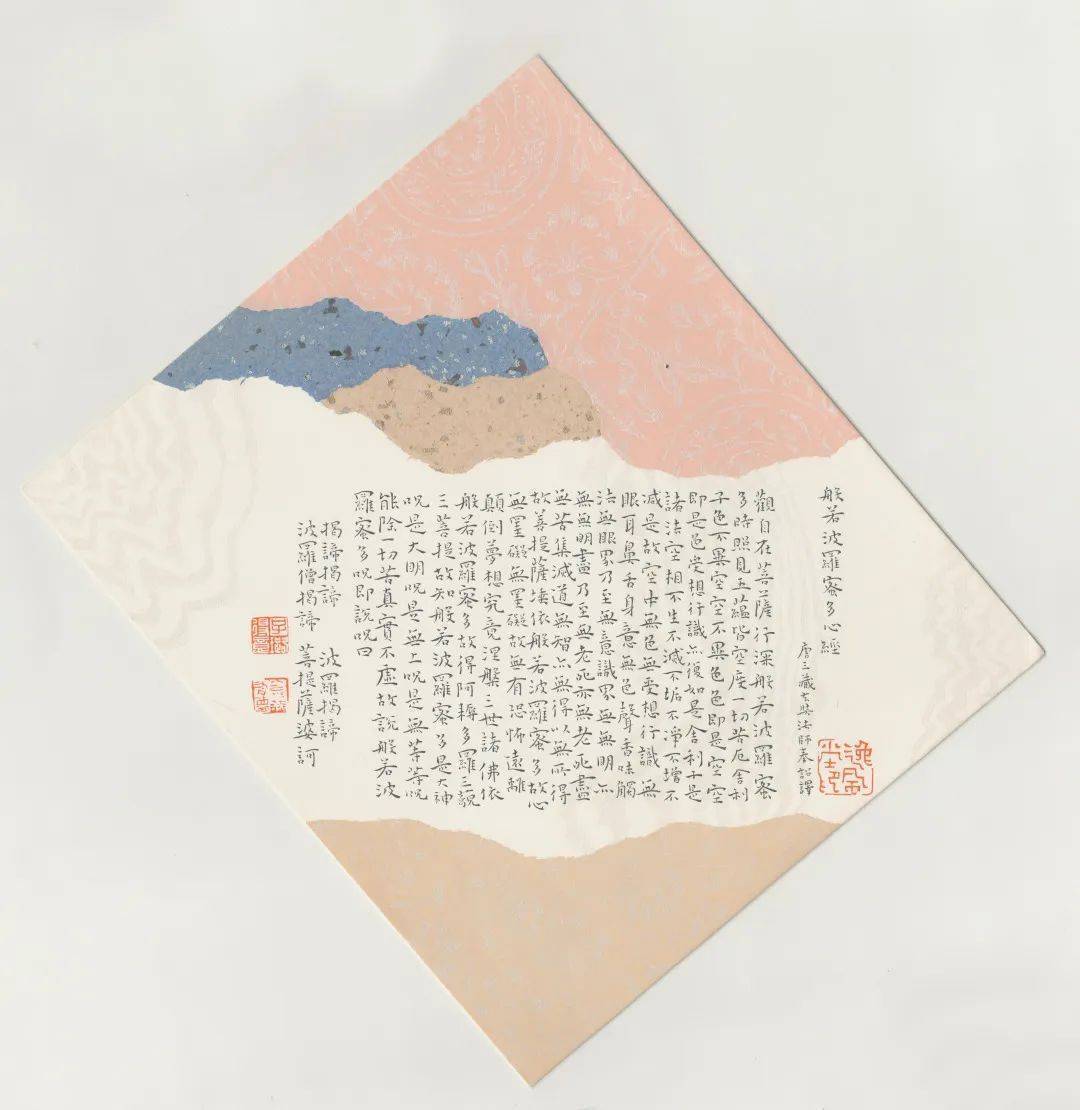 般若波羅蜜多心經
唐三藏玄奘法師奉詔譯
觀自在菩薩行深般若波羅蜜
多時照見五蘊皆空度一切苦厄舍利
子色不異空空不異色色即是空空
即是色受想行識亦復如是舍利子是
諸法空相不生不滅不垢不淨不增不
減是故空中無色無受想行識無
眼耳鼻舌身意無色聲香味觸
法無眼界乃至無意識界無無明亦
無無明盡乃至無老死亦無老死盡
無苦集滅道無智亦無得以無所得
故菩提薩埵依般若波羅蜜多故心
無罣礙無罣礙故無有恐怖遠離
顛倒夢想究竟涅槃三世諸佛依
般若波羅蜜多故得阿耨多羅三藐
三菩提故知般若波羅蜜多是大神
呪是大明呪是無上呪是無等等呪
能除一切苦真實不虛故說般若波
羅蜜多呪即說呪曰
揭諦揭諦 波羅揭諦
波羅僧揭諦 菩提薩婆訶